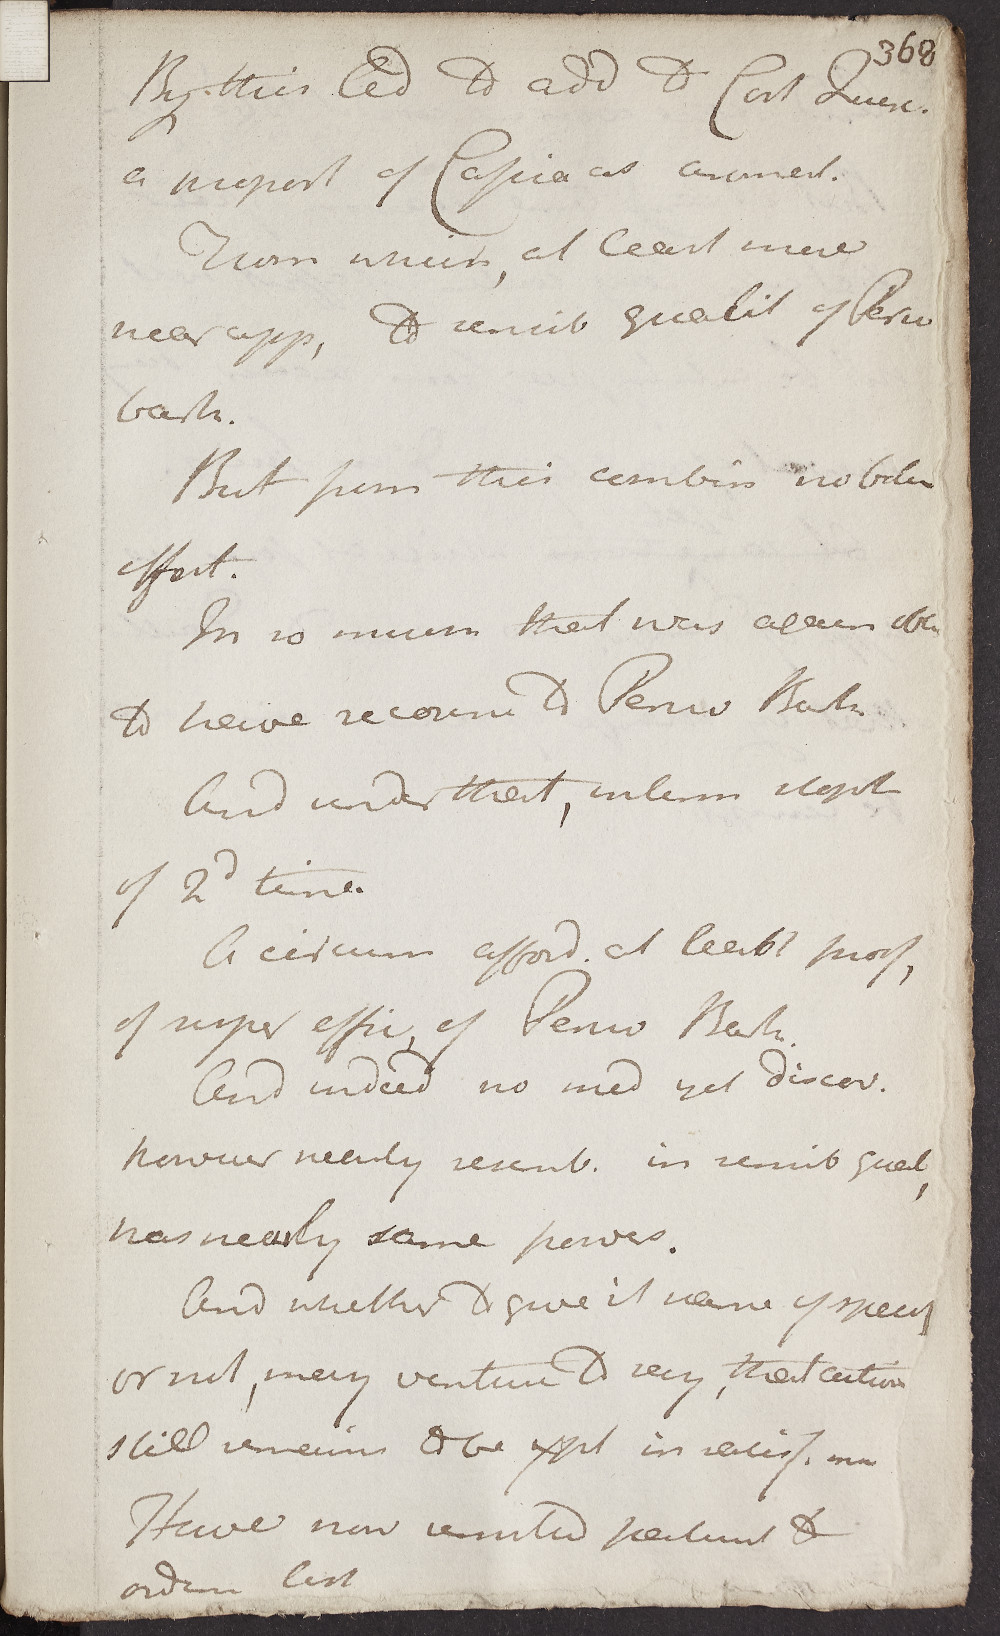 368
By this led to add to Cort Querc.
a proport of Capsic as aromat.
From which, at least more
near app, to sensib qualit of Peruv
bark.
But from this combin no better
effect.
In so much that was again obl
to have recourse to Peruv Bark
And under that, interm stopt
of 2d time.
A circum afford. at least proof,
of super effic, of Peruv Bark.
And indeed no med yet discov.
however nearly resemb. in sensib qual,
has nearly same powers.
And whether to give it name of specif
or not, may venture to say, that action
still remains to be expl in satisf. man
Have now remitted patient to
ordin last